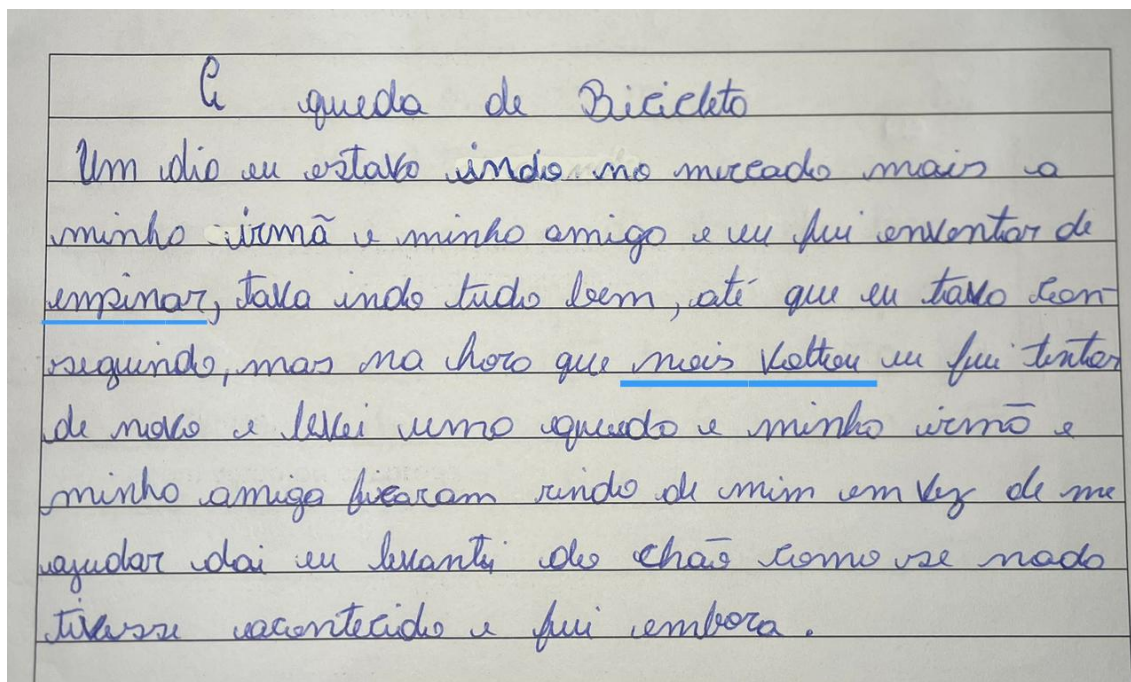 A queda de Bicicleta
Um dia eu estava indo no mercado mais a
minha irmã e minha amiga e eu fui enventar de
empinar, tava indo tudo bem, até que eu tava con-
seguindo, mas na hora que nois voltou eu fui tentar
de novo e levei uma queda e minha irmã e
minha amiga ficaram rindo de mim em vez de me
ajudar dai eu levantei do chão como se nada
tivesse acontecido e fui embora.